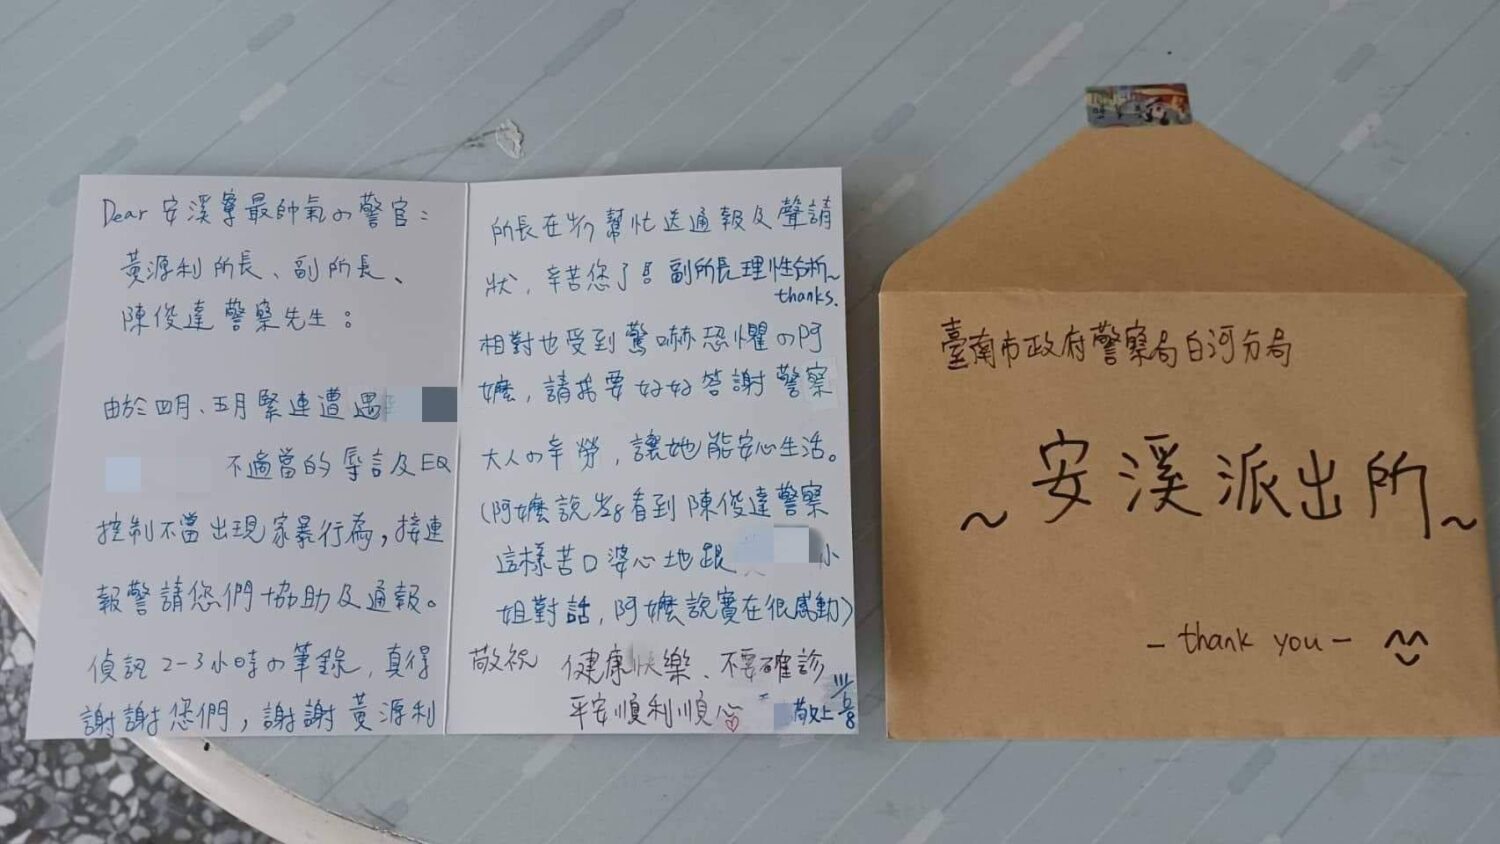 Dear 安溪寮最帥氣の警官：
黃源利所長、副所長、
陳俊達警察先生：
由於四月、五月緊連遭遇
不適當的辱言及EQ
控制不當出現家暴行為，接連
報警請您們協助及通報。
偵訊2-3小時の筆錄，真得
謝謝您們，謝謝黃源利
所長在 幫忙送通報及聲請
狀，辛苦您了！副所長理性分析~
thanks.
相對也受到驚嚇恐懼の阿
嬤，請我要好好答謝警察
大人の辛勞，讓她能安心生活。
(阿嬤說 看到陳俊達警察
這樣苦口婆心地跟 小
姐對話，阿嬤說實在很感動)
敬祝 健康快樂、不要確診
平安順利順心
敬上 111/5/8
臺南市政府警察局白河分局
~安溪派出所~
- thank you -